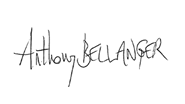 Anthony BELLANGER